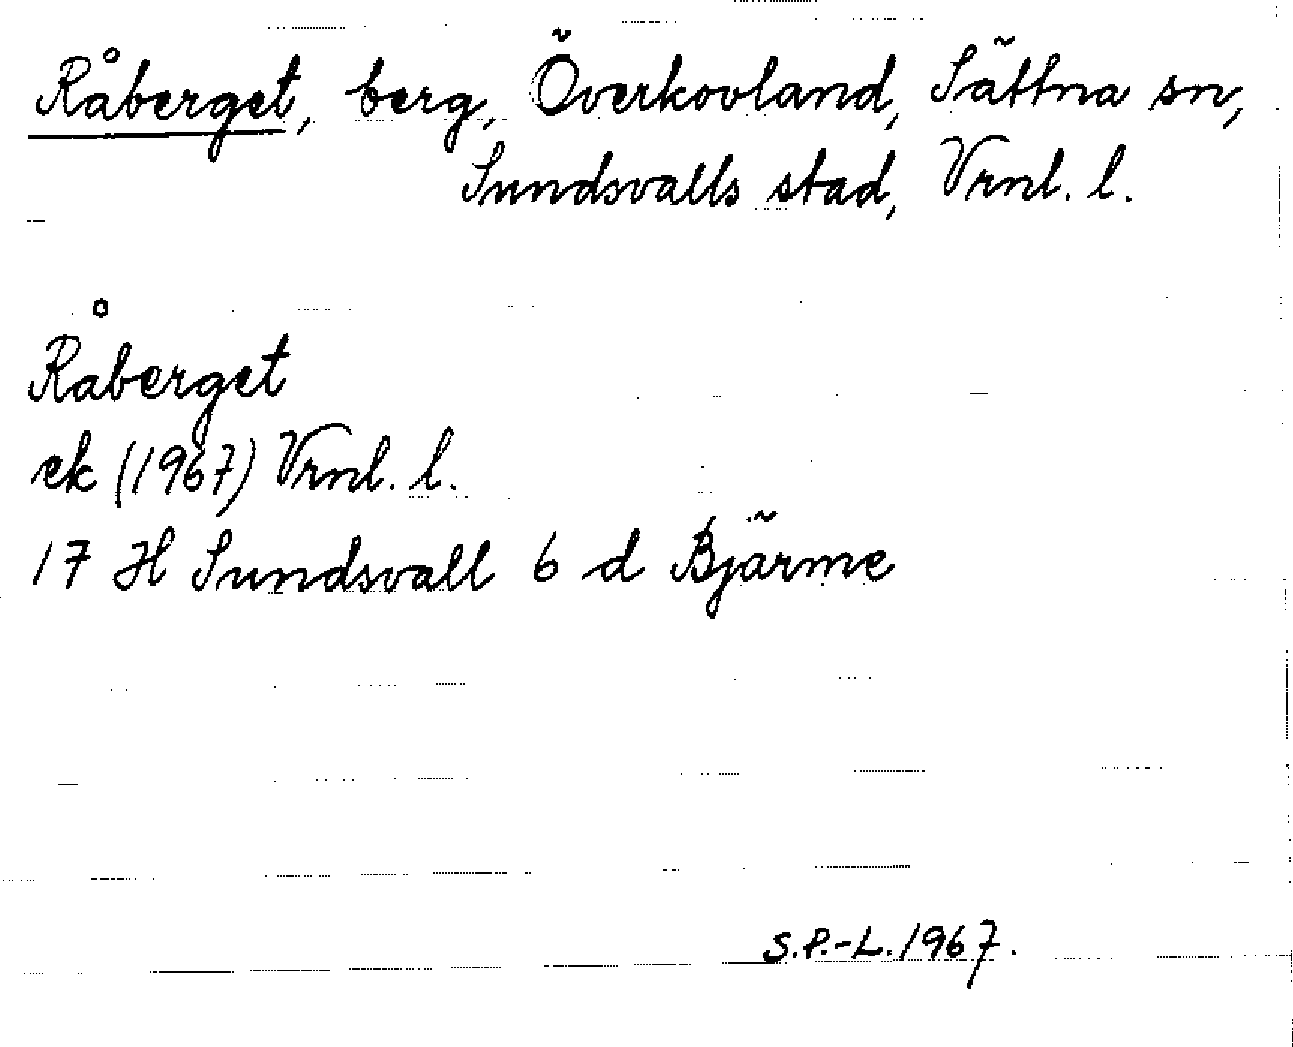 Råberget, berg, Överkovland, Sättna sn,
Sundsvalls stad, Vrnl. l.
Råberget
ek (1967) Vrnl. l.
17 H Sundsvall 6 d Bjärme
S.P.-L. 1967.